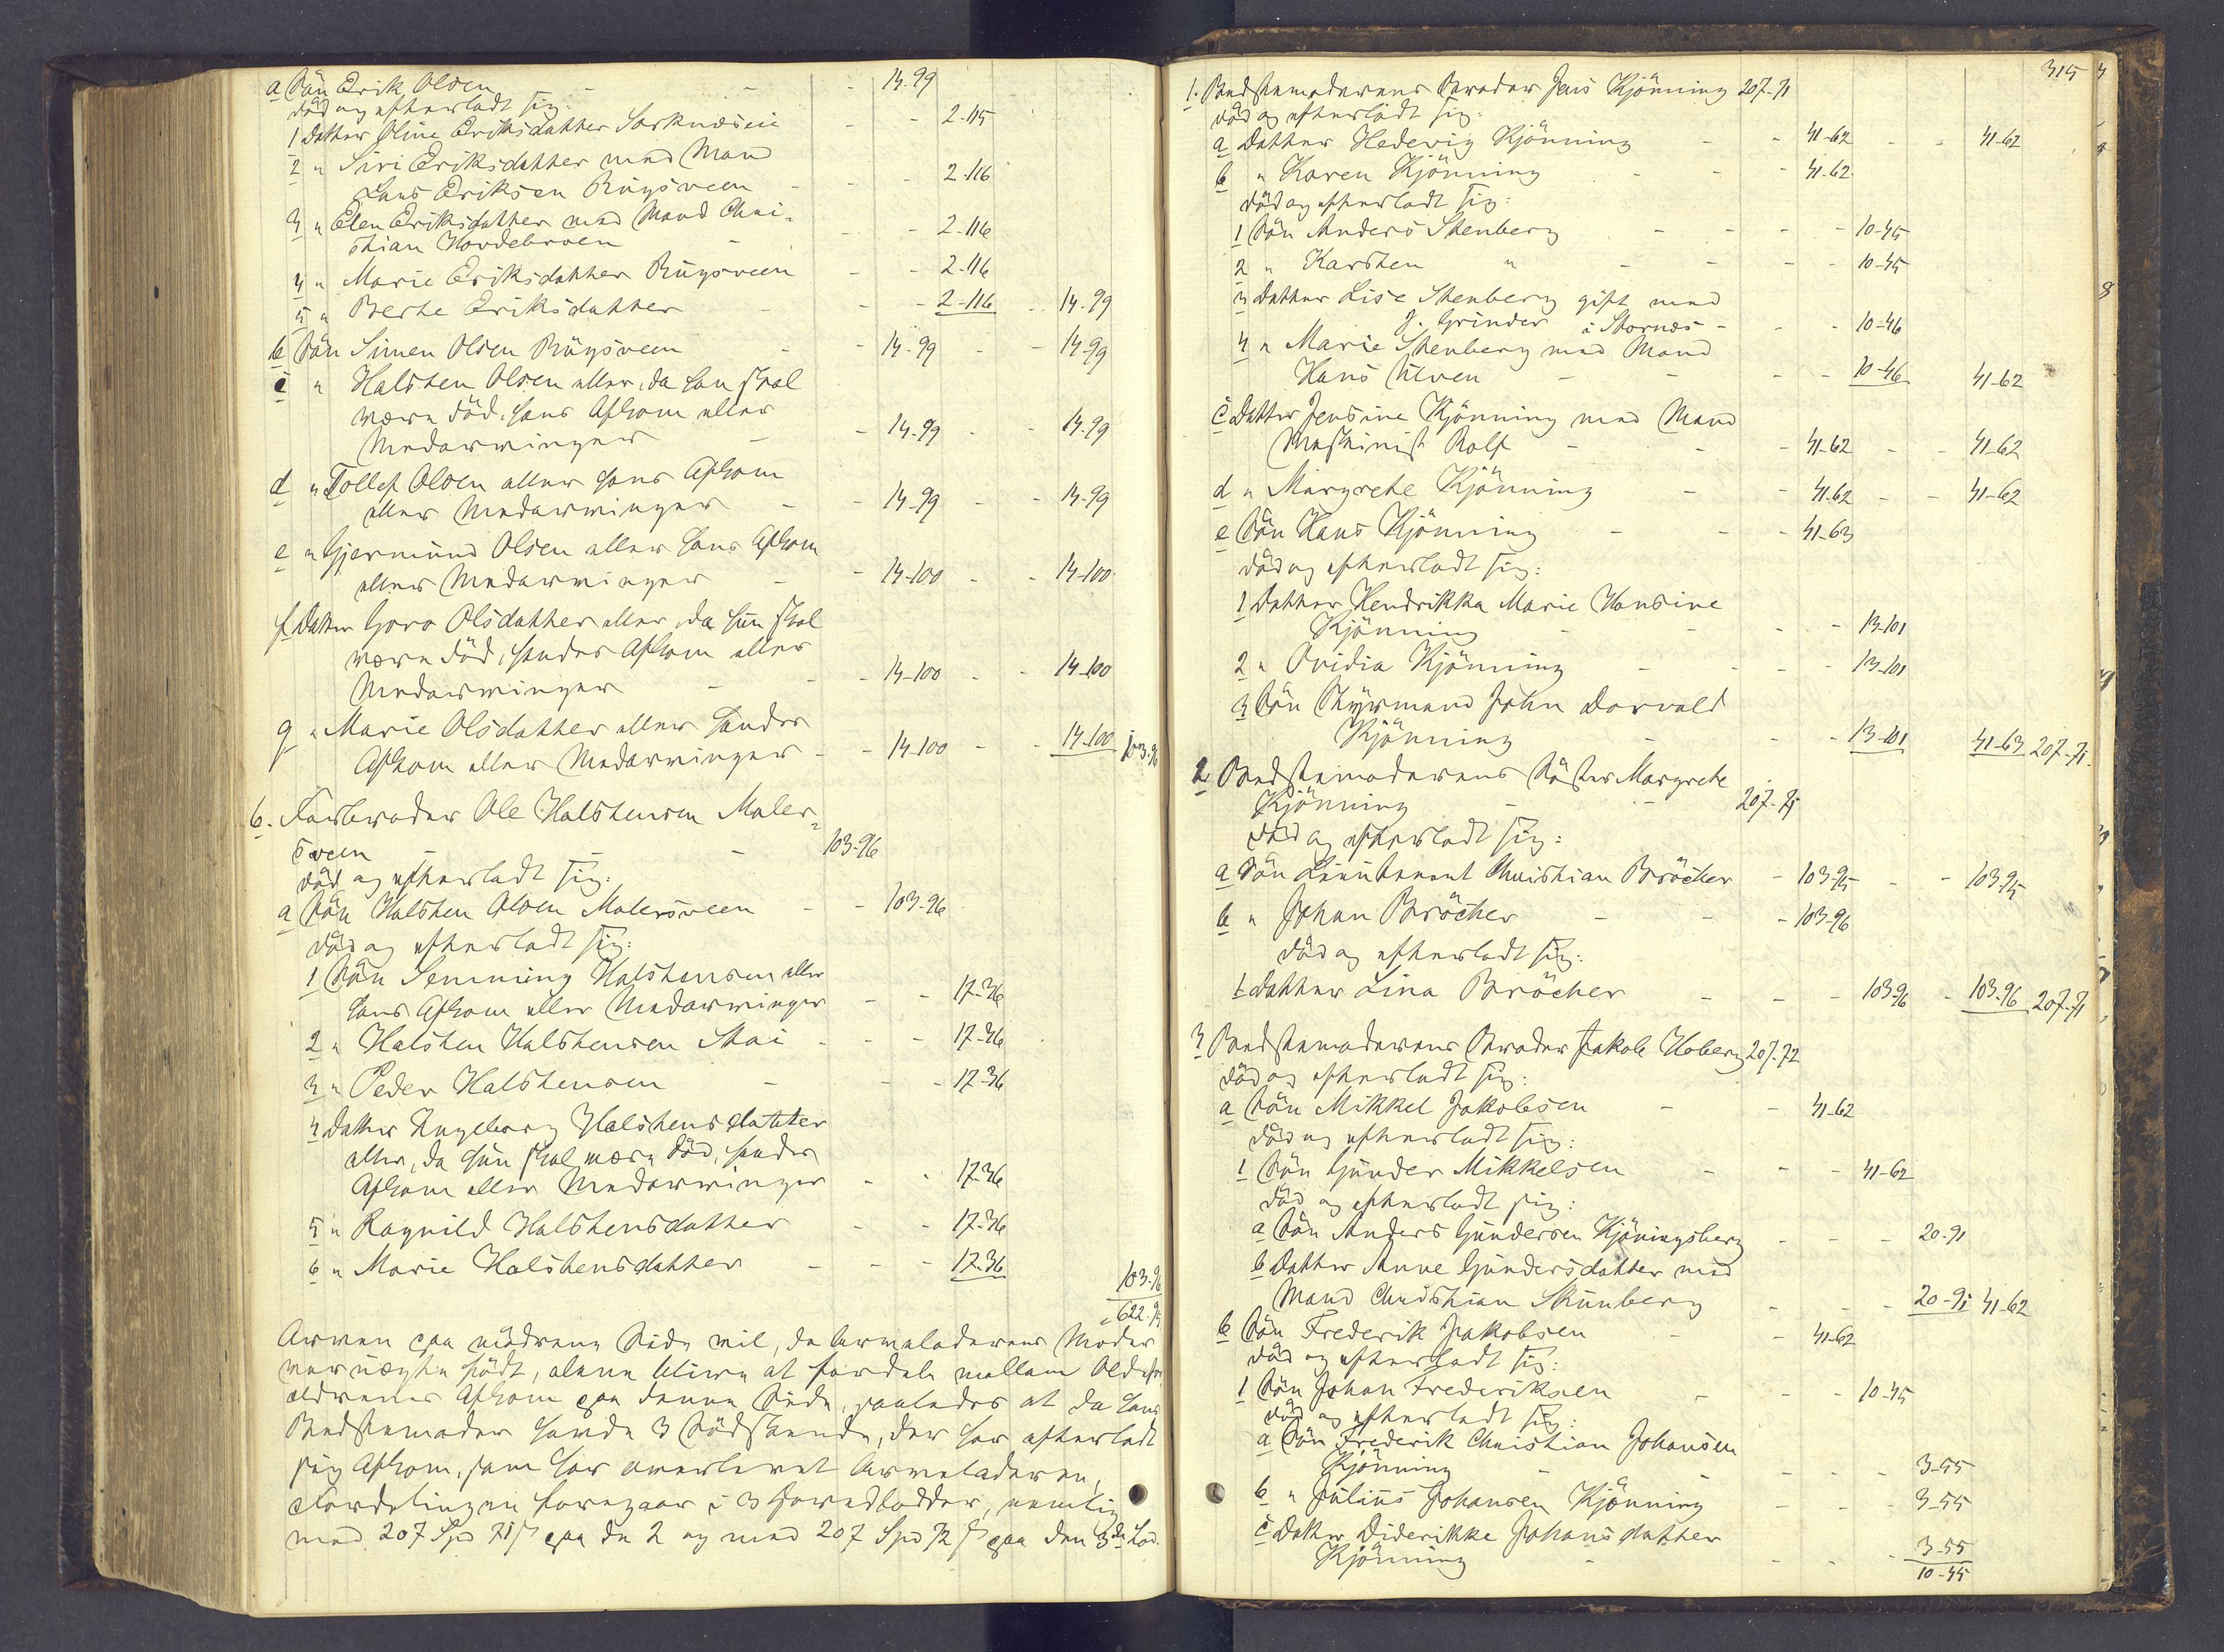 a Søn Erik Olsen - - - 14-99
død og efterladt sig:
1 Datter Oline Eriksdatter - - 2-115
2 " Siri Eriksdatter med Mand
Lars Eriksen Rugsveen - - - 2-116
3 " Elen Eriksdatter med Mand Chri-
stian Hordebroen - - - 2-116
4 " Marie Eriksdatter Rugsveen - - 2-116
5 " Berte Eriksdatter - - - 2-116 - - 14-99
b Søn Simen Olsen Rugsveen - - 14-99 - - 14-99
c " Halsten Olsen eller, da han skal
være død, hans Afkom eller
Medarvinger - - 14-99 - - 14-99
d " Tollef Olsen eller hans Afkom
eller Medarvinger - - 14-99 - - 14-99
e " Gjermund Olsen eller hans Afkom
eller Medarvinger - - 14-100 - - 14-100
f Datter Goro Olsdatter eller, da hun skal
være død, hendes Afkom eller
Medarvinger - - - 14-100 - - 14-100
g " Marie Olsdatter eller hendes
Afkom eller Medarvinger - - 14-100 - - 14-100 103-96
6. Farbroder Ole Halstensen Maler-
sveen - - - 103-96
død og efterladt sig:
a Søn Halsten Olsen Malersveen - - 103-96
død og efterladt sig:
1 Søn Semming Halstensen eller
hans Afkom eller Medarvinger - - 17-36
2 " Halsten Halstensen Stai - - - 17-36
3 " Peder Halstensen - - - 17-36
4 Datter Ingeborg Halstensdatter
eller, da hun skal være død, hendes
Afkom eller Medarvinger - - 17-36
5 " Ragnild Halstensdatter - - 17-36
6 " Marie Halstensdatter - - - 17-36
103-96
622-95
Arven paa mødrene Side vil, da Arveladerens Moder
var uægte født, alene blive at fordele mellem Oldefor-
ældrenes Afkom paa denne Side, saaledes at da hans
Bedstemoder havde 3 Sødskende, der har efterladt
sig Afkom, som har overlevet Arveladeren,
Fordelingen foregaar i 3 Hovedlodder, nemlig
med 207 Spd 71 ß paa de 2 og med 207 Spd 72 ß paa den 3die Lod.
315
1. Bedstemoderens Broder Jens Kjønning 207-71
død og efterladt sig:
a Datter Hedevig Kjønning - - 41-62 - - 41-62
b " Karen Kjønning - - 41-62
død og efterladt sig:
1 Søn Anders Stenberg - - - - 10-45
2 " Karsten " - - - - 10-45
3 Datter Lise Stenberg gift med
J. Grinder i Stornæs - - - 10-46
4 " Marie Stenberg med Mand
Hans Ulven - - - - 10-46 41-62
c Datter Jensine Kjønning med Mand
Maskinist Rolf - - - 41-62 - - 41-62
d " Margrete Kjønning - - 41-62 - - 41-62
e Søn Hans Kjønning - - - 41-63
død og efterladt sig:
1 Datter Hendrikka Marie Hansine
Kjønning - - - - 13-101
2 " Ovidia Kjønning - - - - 13-101
3 Søn Styrmand John Dorvald
Kjønning - - - 13-101 41-63 207-71
2. Bedstemoderens Søster Margrete
Kjønning - - 207-71
død og efterladt sig:
a Søn Lieutenant Christian Brøcher - 103-95 - - 103-95
b " Johan Brøcher - - - 103-96
død og efterladt sig:
1 Datter Lina Brøcher - - - 103-96 - 103-96 207-71
3 Bedstemoderens Broder Jakob Hoberg 207-72
død og efterladt sig:
a Søn Mikkel Jakobsen - - 41-62
død og efterladt sig:
1 Søn Gunder Mikkelsen - - - 41-62
død og efterladt sig:
a Søn Anders Gundersen Kjøningsberg - - - 20-91
b Datter Anne Gundersdatter med
Mand Christian Skunberg - - - 20-91 41-62
b Søn Frederik Jakobsen - - 41-62
død og efterladt sig:
1 Søn Johan Frederiksen - - - 10-45
død og efterladt sig:
a Søn Frederik Christian Johansen
Kjønning - - - - 3-55
b " Julius Johansen Kjønning - - - 3-55
c Datter Diderikke Johansdatter
Kjønning - - - - 3-55
10-45